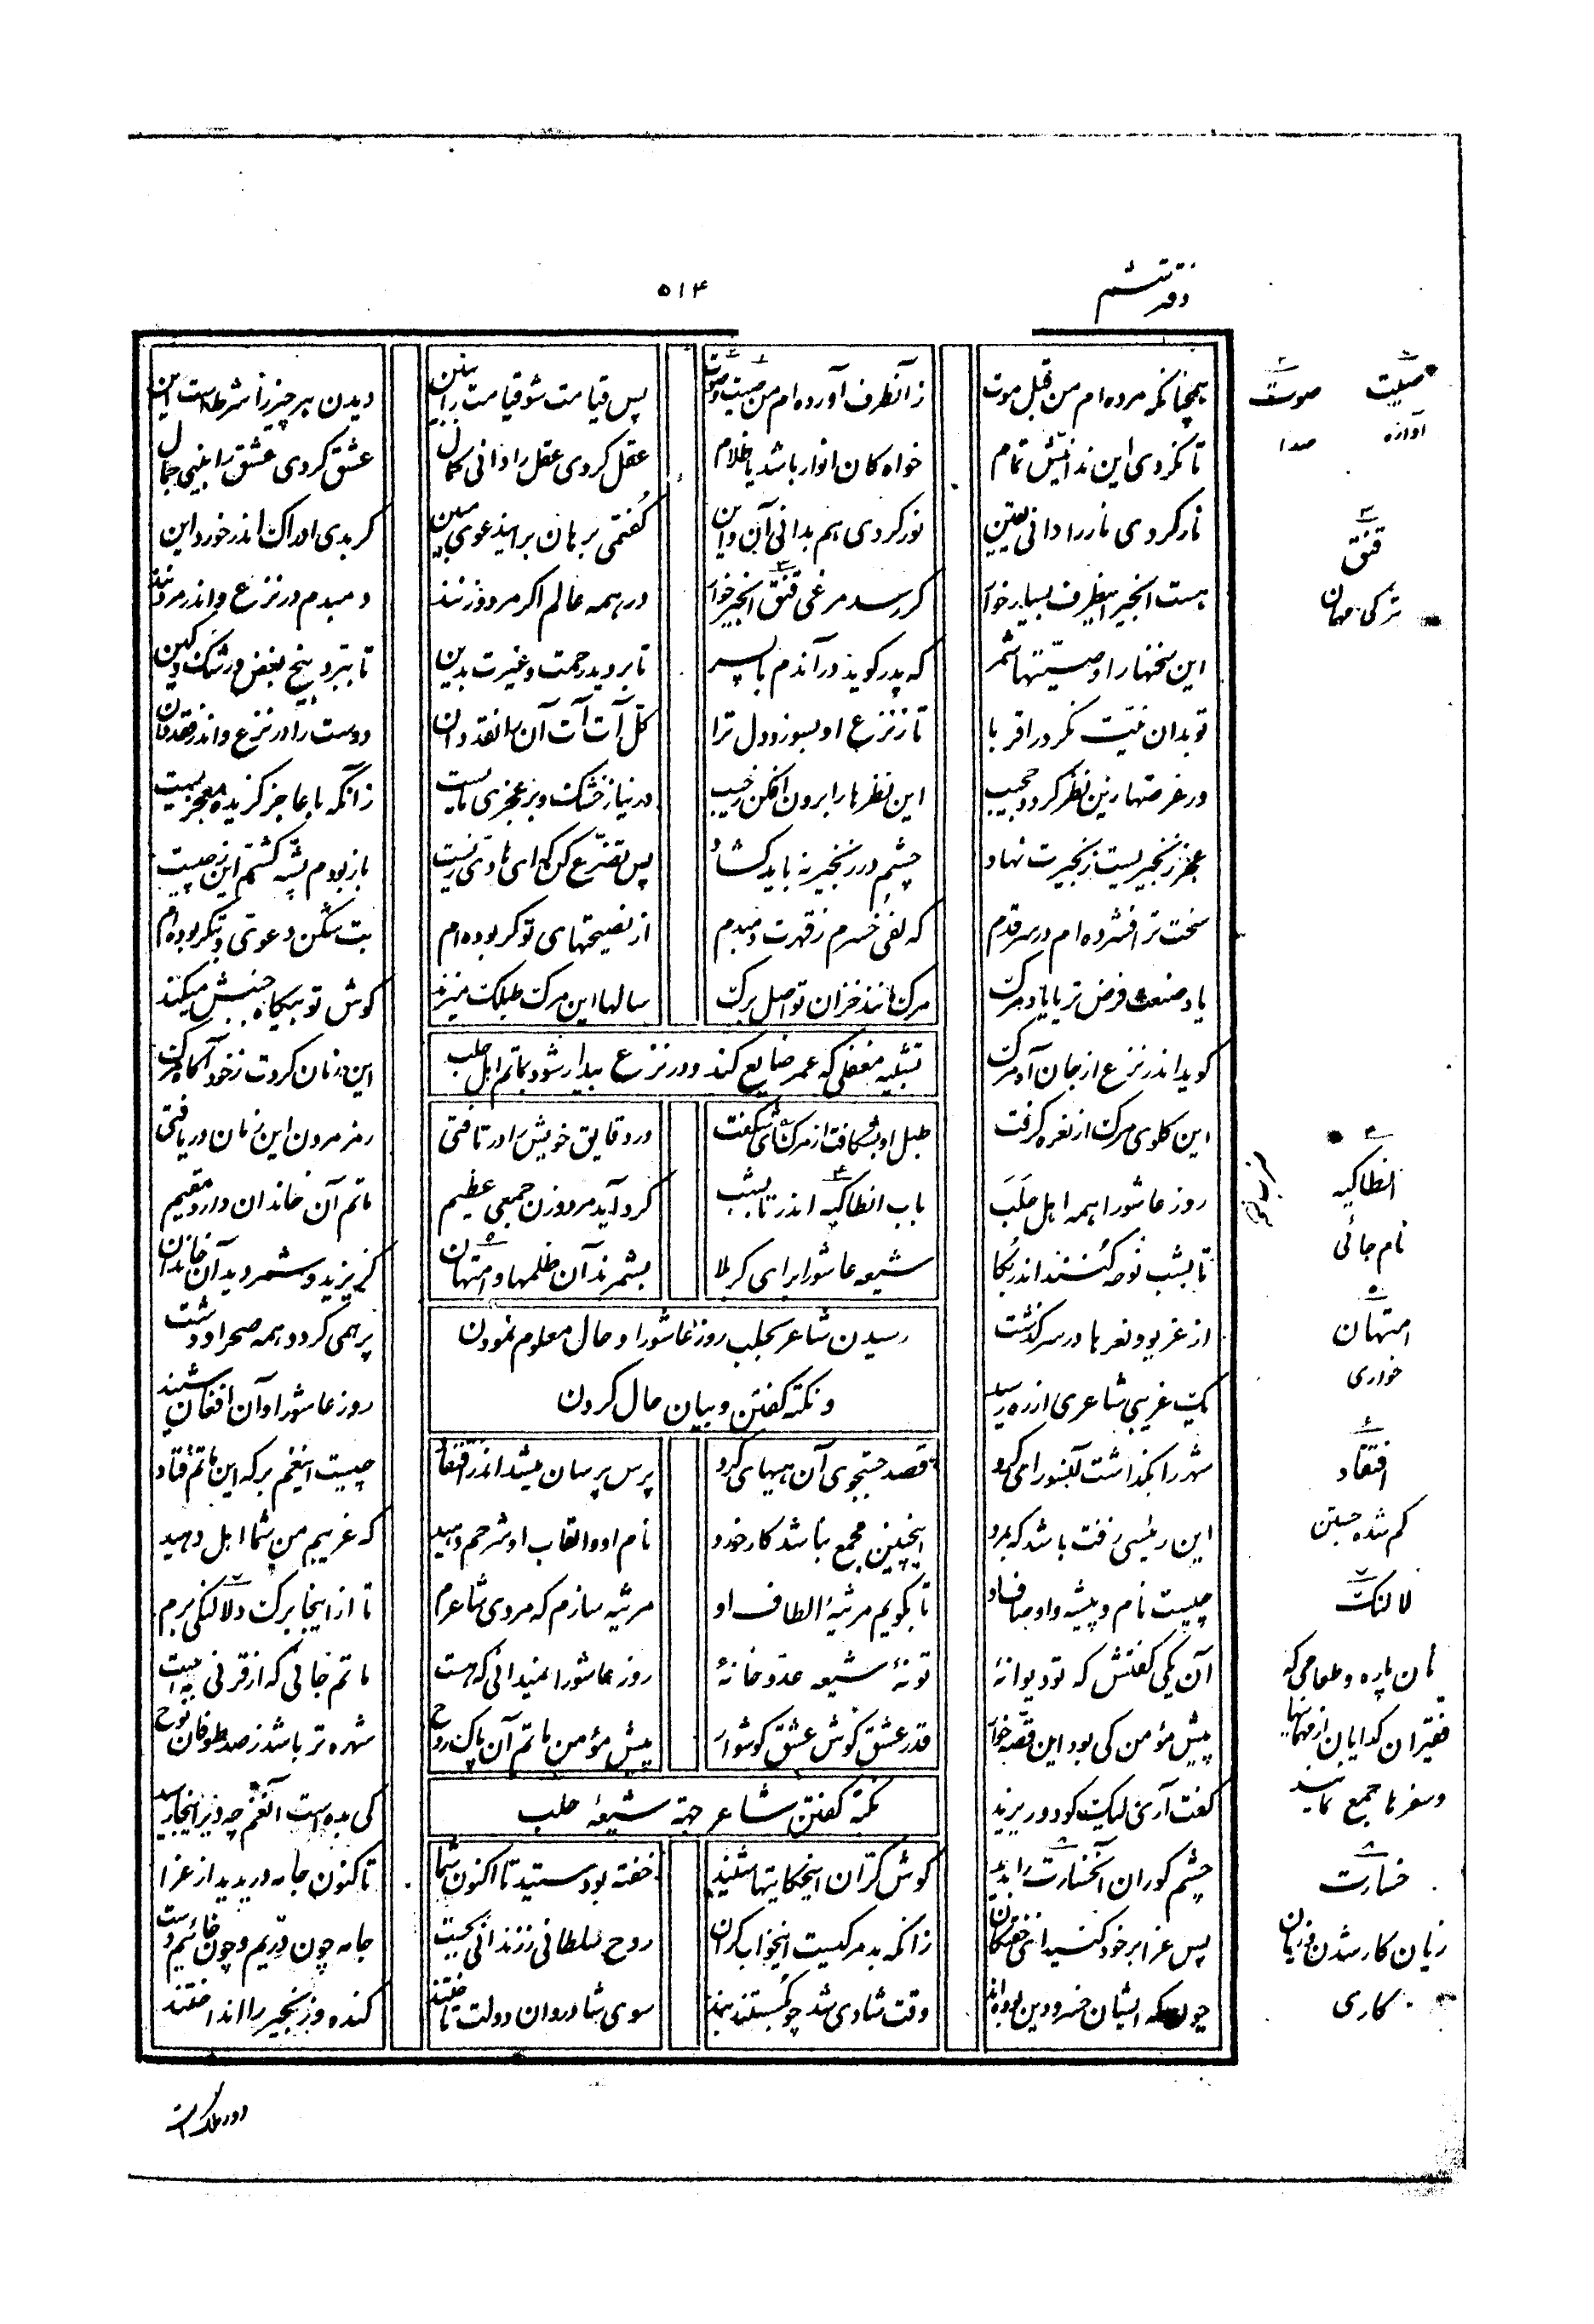 دفتر ششم
۵۱۴
همچنانکه مرده‌ام من قبل موت زآنطرف آورده‌ام من صیت و صوت پس قیامت شو قیامت را ببین دیدن هر چیز را شرطست این
تا نگردی این ندانیش تمام خواه کان انوار باشد یا ظلام عقل گردی عقل را دانی کمال عشق گردی عشق را بینی جمال
نار گردی نار را دانی یقین نور گردی هم بدانی آن و این گفتمی برهان بر این دعوی مبین گر بدی ادراک اندر خورد این
هست انجیر اینطرف بسیار خوار گر رسد مرغی قنق انجیر خوار در همه عالم اگر مرد و زنند دمبدم در نزع و اندر مردنند
این سخنها را وصیتها شمر که پدر گوید در آندم با پسر تا بروید رحمت و غیرت بدین تا ببرد بیخ بغض و رشک و کین
تو بدان نیت نگر در اقربا تا ز نزع او بسوزد دل ترا کل آت آت آن را نقد دان دوست را در نزع و اندر فقد دان
ور غرضها زین نظر گردد حجیب این نظرها را برون افکن ز جیب ور نیاز خشک و بر عجزی مایست زآنکه با عاجز گزیده معجزیست
عجز زنجیریست زنجیرت نهاد چشم در زنجیر نه باید گشاد پس تضرع کن که ای هادی زیست باز بودم پشه گشتم این ز چیست
سخت‌تر افشرده‌ام در سر قدم که لفی خسرم ز قهرت دمبدم از نصیحتهای تو کر بوده‌ام بت شکن دعوی و بتگر بوده‌ام
یاد صنعت فرض‌تر یا یاد مرگ مرگ مانند خزان تو اصل برگ سالها این مرگ طبلک میزند گوش تو بیگاه جنبش میکند
گوید اندر نزع از جان آه مرگ این زمان کردت ز خود آگاه مرگ
تشبیه مغفلی که عمر ضایع کند و در نزع بیدار شود بماتم اهل حلب
این گلوی مرگ از نعره گرفت طبل او بشکافت از مرگ ای شگفت در دقایق خویش را در تافتی رمز مردن این زمان دریافتی
روز عاشورا همه اهل حلب باب انطاکیه اندر تا بشب گرد آید مرد و زن جمعی عظیم ماتم آن خاندان دارد مقیم
تا بشب نوحه کنند اندر بکا شیعه عاشورا برای کربلا بشمرند آن ظلمها و امتهان کز یزید و شمر دید آن خاندان
از غریو و نعرها در سرگذشت پر همی گردد همه صحرا و دشت
رسیدن شاعر بحلب روز عاشورا و حال معلوم نمودن
و نکته گفتن و بیان حال کردن
یک غریبی شاعری از ره رسید روز عاشورا و آن افغان شنید
شهر را بگذاشت و آنسو رای کرد قصد جستجوی آن هیهای کرد پرس پرسان میشد اندر افتقاد چیست این غم بر که این ماتم فتاد
این رئیسی رفت باشد که بمرد اینچنین مجمع نباشد کار خرد نام او و القاب او شرحم دهید که غریبم من شما اهل دهید
چیست نام و پیشه و اوصاف او تا بگویم مرثیهٔ الطاف او مرثیه سازم که مردی شاعرم تا از اینجا برگ و لالنگی برم
آن یکی گفتش که تو دیوانهٔ تو نهٔ شیعه عدو خانهٔ روز عاشورا نمیدانی که هست ماتم جانی که از قرنی بهست
پیش مؤمن کی بود این قصه خوار قدر عشق گوش عشق گوشوار پیش مؤمن ماتم آن پاک روح شهره‌تر باشد ز صد طوفان نوح
گفت آری لیک کو دور یزید کی بده است آنغم چه دیر اینجا رسید
نکته گفتن شاعر جهة شیعهٔ حلب
چشم کوران آنخسارت را بدید گوش کران اینحکایتها شنید خفته بودستید تا اکنون شما تا کنون جامه دریدید از عزا
پس عزا بر خود کنید ای خفتگان زانکه بد مرگیست اینخواب گران روح سلطانی ز زندانی بجست جامه چون دریم و چون خائیم دست
چونکه ایشان خسرو دین بوده‌اند وقت شادی شد چو بگسستند بند سوی شادروان دولت تاختند کنده و زنجیر را انداختند
صیت
آوازه
صوت
صدا
قنق
ترکی مهمان
انطاکیه
نام جائی
امتهان
خواری
افتقاد
گم شده جستن
لالنگ
نان پاره و طعامی که
فقیران گدایان از مهمانیها
و سفرها جمع نمایند
خسارت
زیان کار شدن و زیان
کاری
دور ملک است